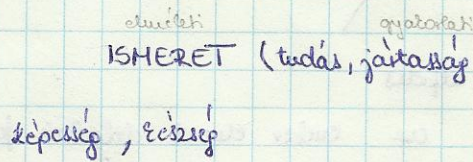 elméleti gyakorlati
ISMERET (tudás, jártasság
képesség, készség